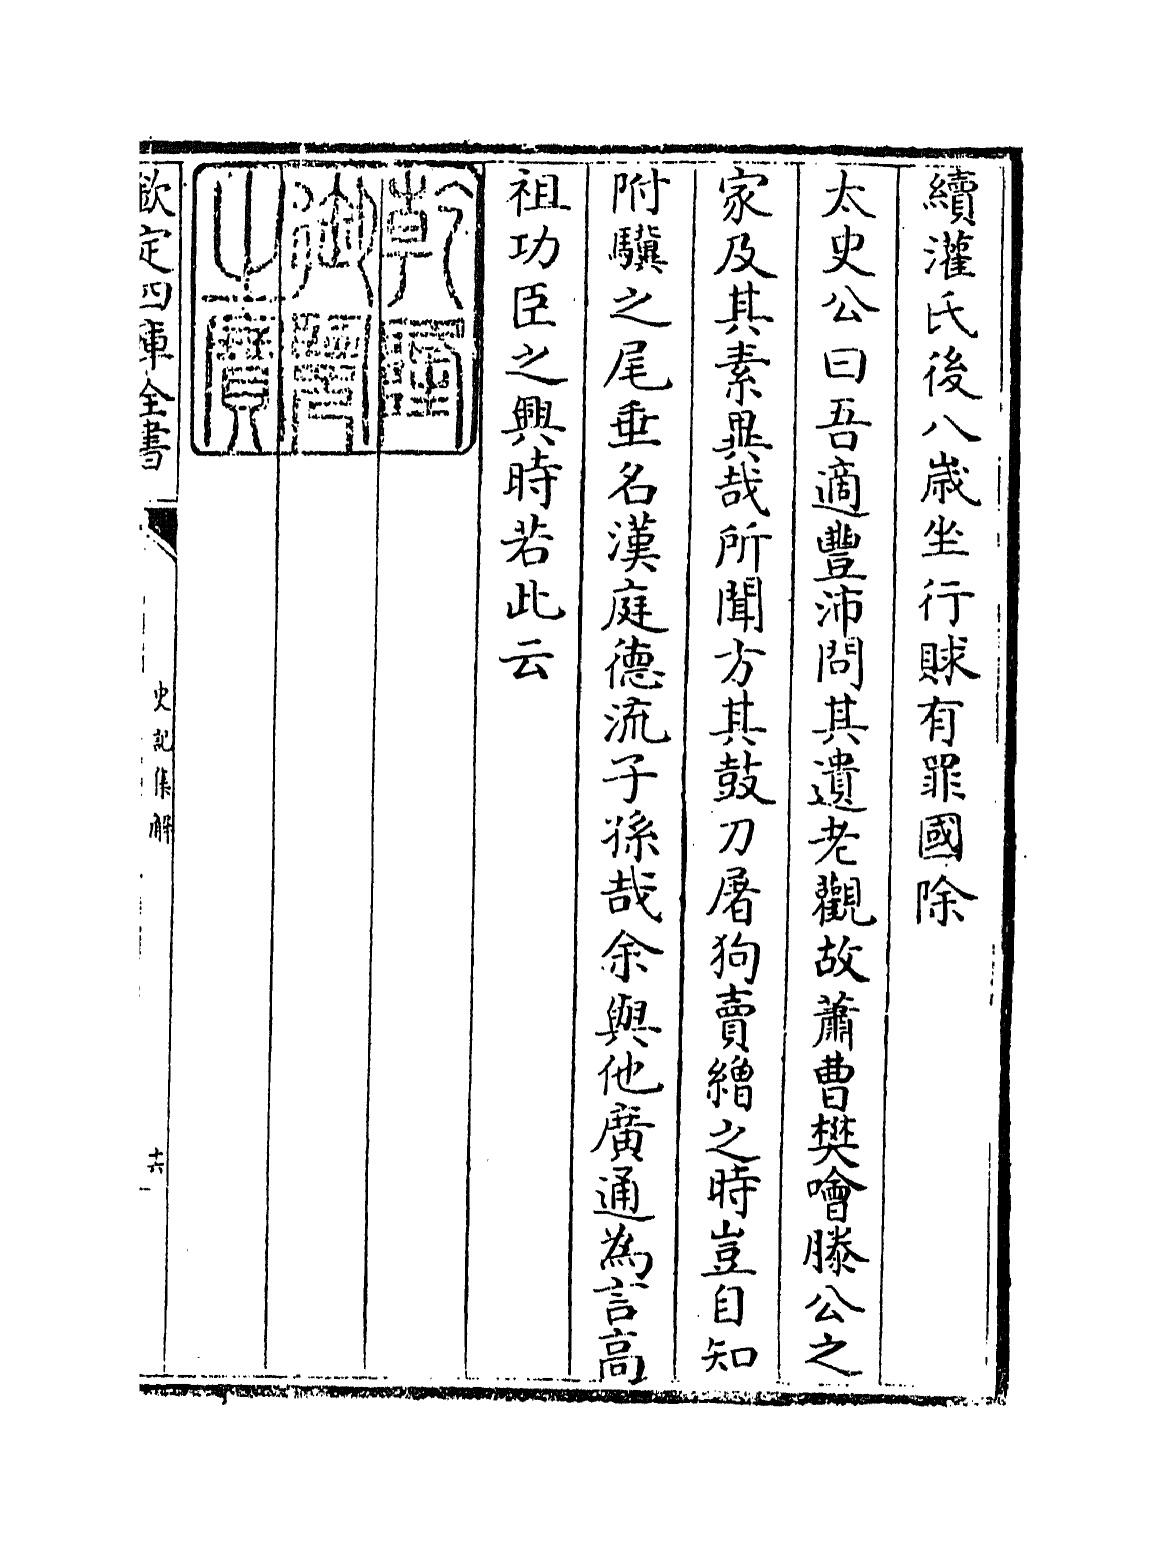 續灌氏後八歳坐行賕有罪國除
太史公曰吾適豐沛問其遺老觀故蕭曹樊噲滕公之
家及其素異哉所聞方其鼓刀屠狗賣繒之時豈自知
附驥之尾垂名漢庭德流子孫哉余與他廣通為言高
祖功臣之興時若此云
乾隆
御覽
之寶
欽定四庫全書
史記集解
十六